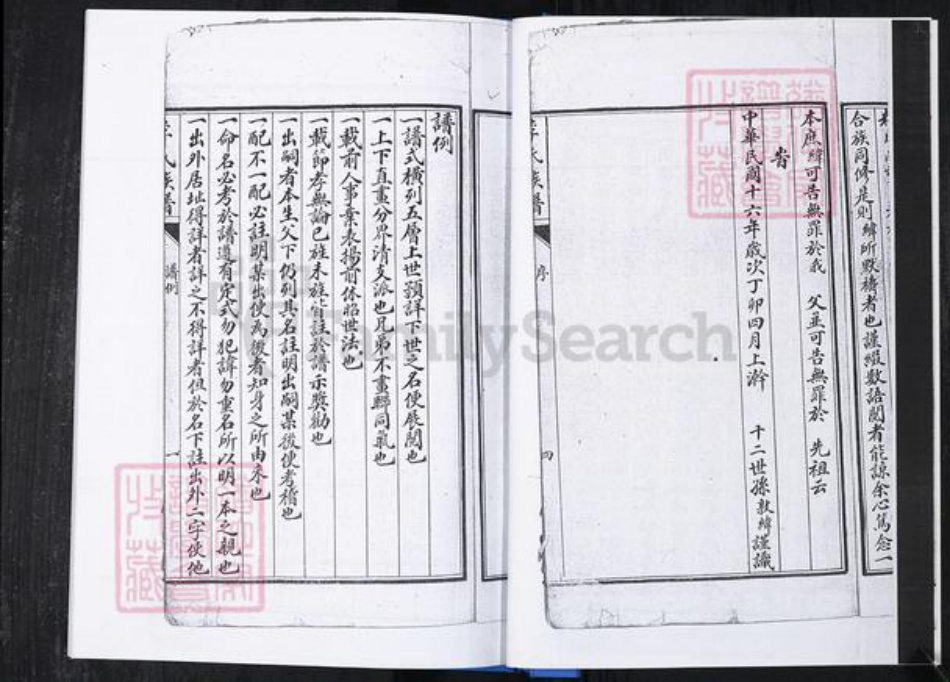 合族同修是則緯所默禱者也謹綴數語閱者能諒余心篤念一
本庶緯可告無罪於我　父並可告無罪於　先祖云
旹
中華民國十六年歲次丁卯四月上澣　十二世孫敦緯謹識
氏族譜
序
四
譜例
一譜式橫列五層上世預詳下世之名便展閱也
一上下直畫分界清支派也兄弟不畫聯同氣也
一載前人事業表揚前休昭世法也
一載節孝無論已旌未旌皆註於譜示獎勸也
一出嗣者本生父下仍列其名註明出嗣某後便考稽也
一配不一配必註明某出使為後者知身之所由來也
一命名必考於譜遵有定式勿犯諱勿重名所以明一本之親也
一出外居址得詳者詳之不得詳者但於名下註出外二字使他
氏族譜
譜例
一
FamilySearch